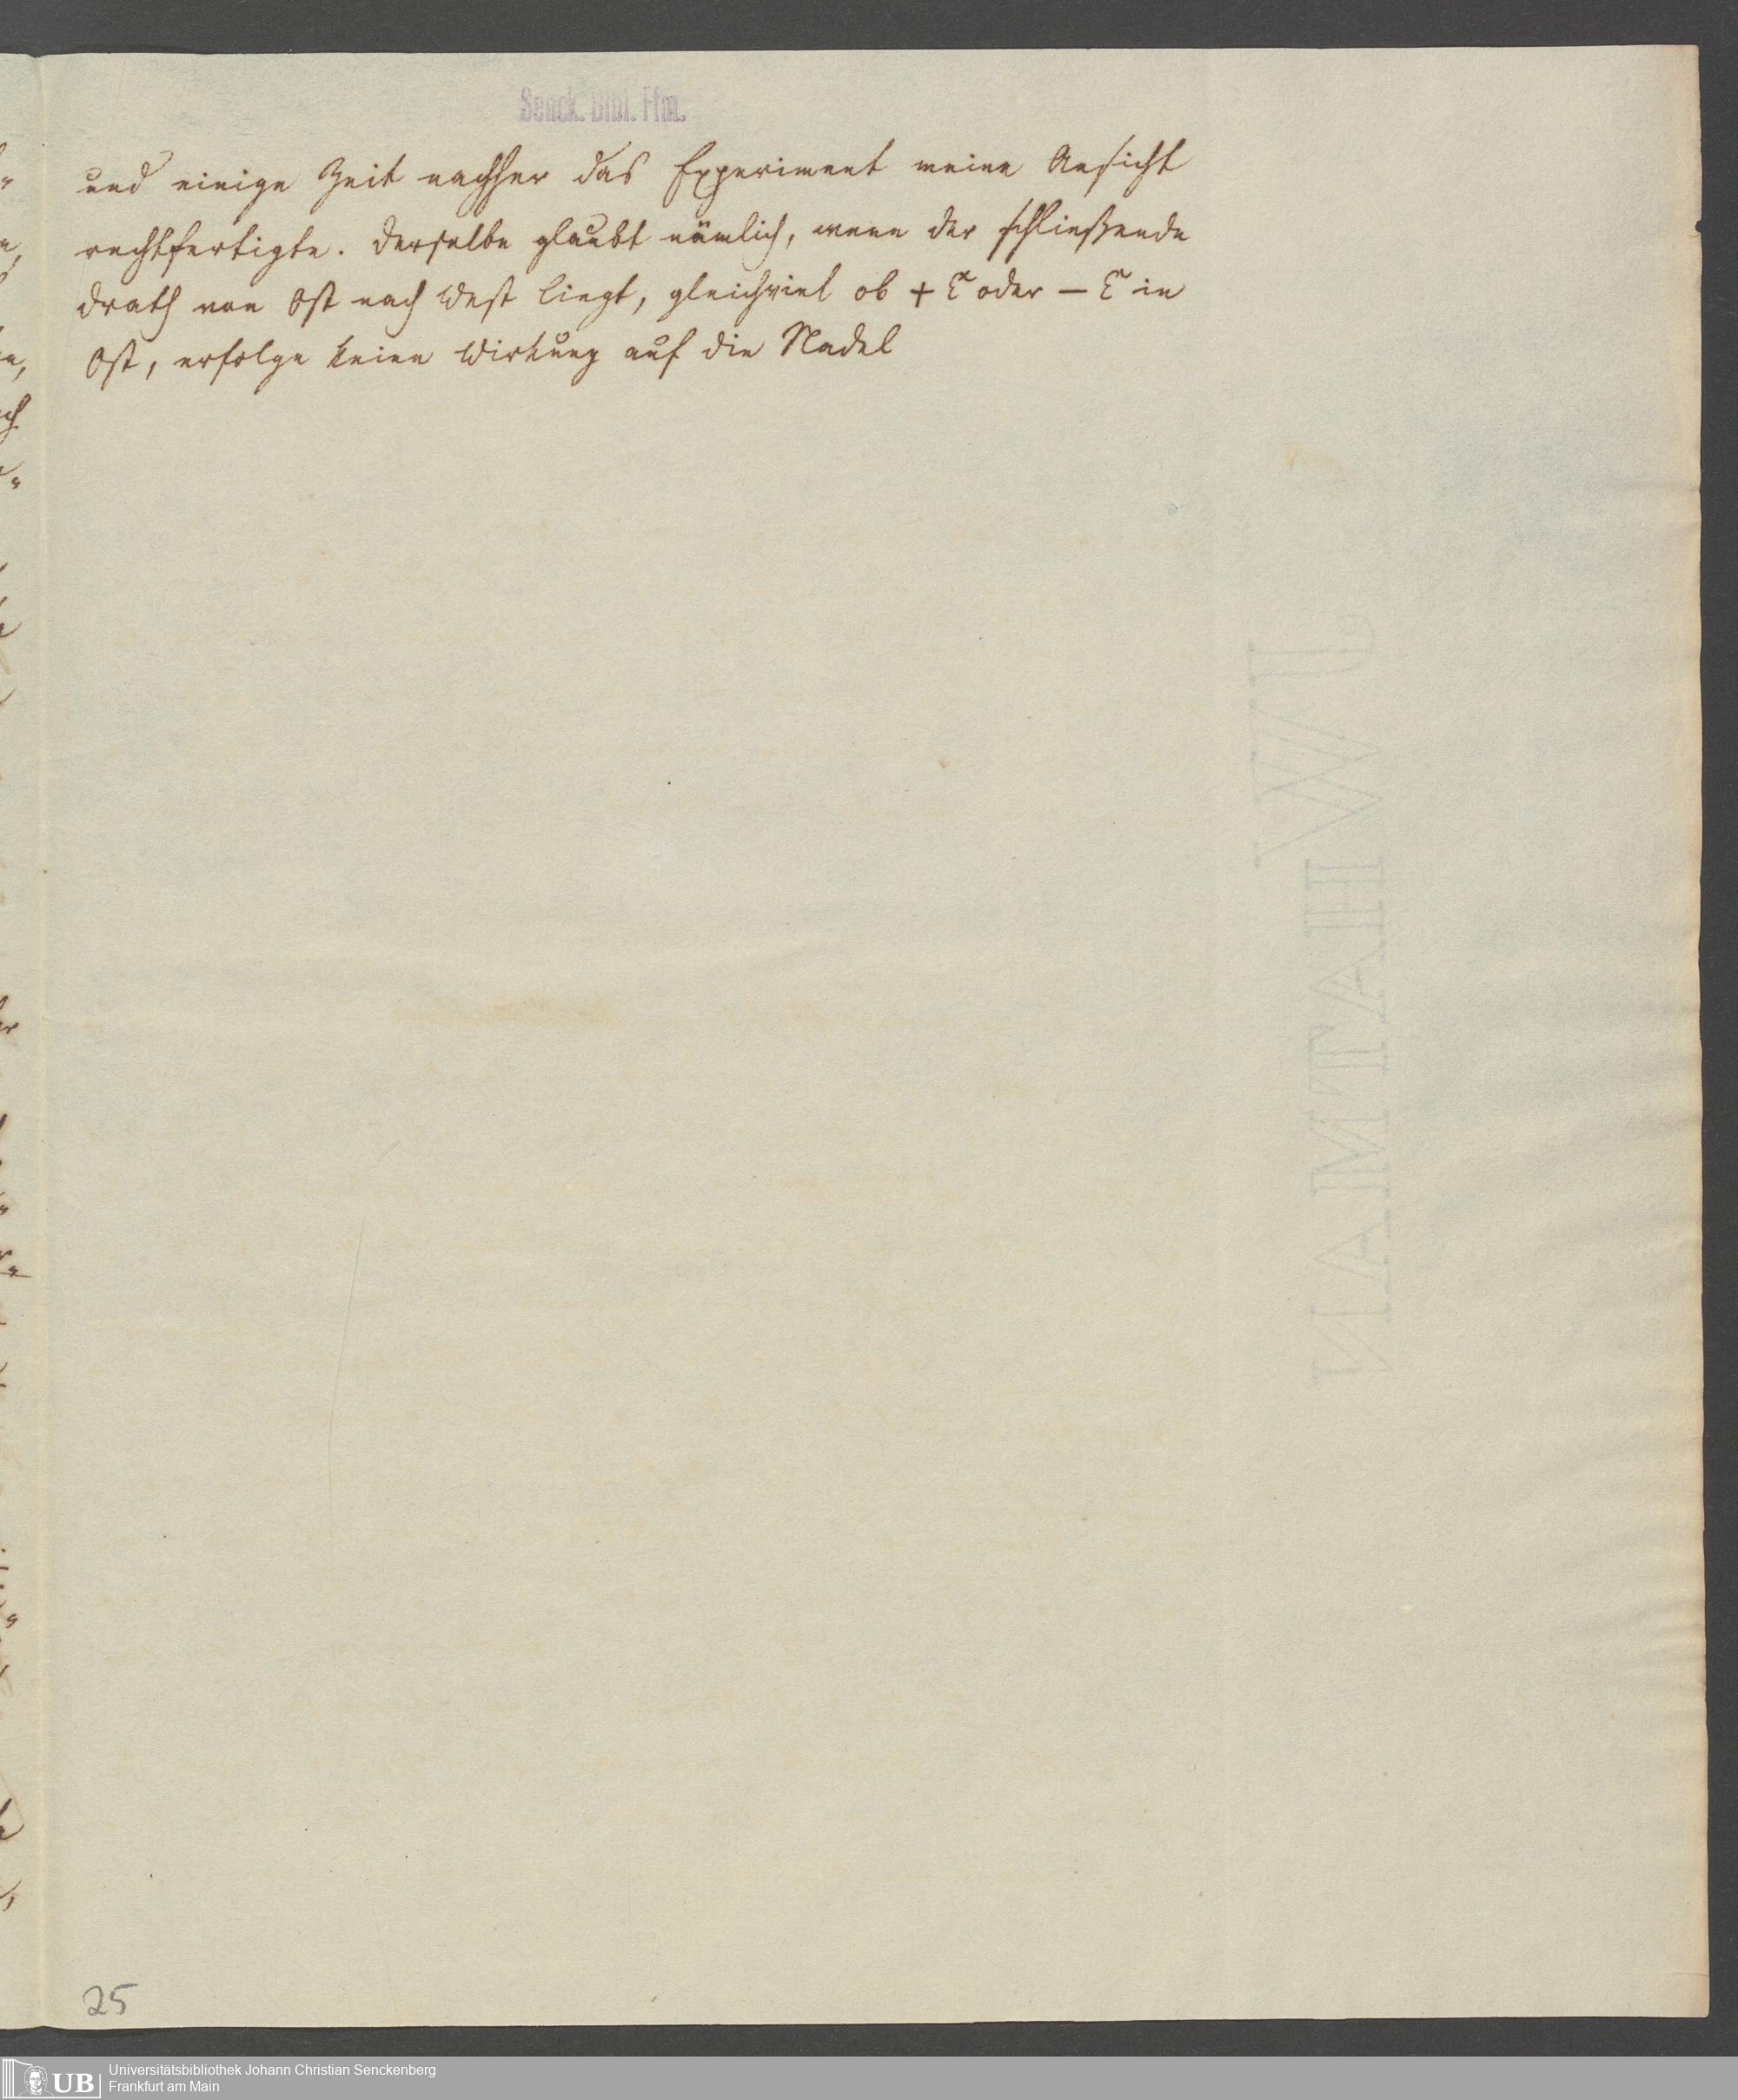 Senck. Bibl. Ffm.
und einige Zeit nachher das Experiment meine Ansicht
rechtfertigte. Derselbe glaubt nämlich, wenn der schließende
Drath von Ost nach West liegt, gleichviel ob + E oder — E in
Ost, erfolge keine Wirkung auf die Nadel
J WHATMAN
25
UB
Universitätsbibliothek Johann Christian Senckenberg
Frankfurt am Main